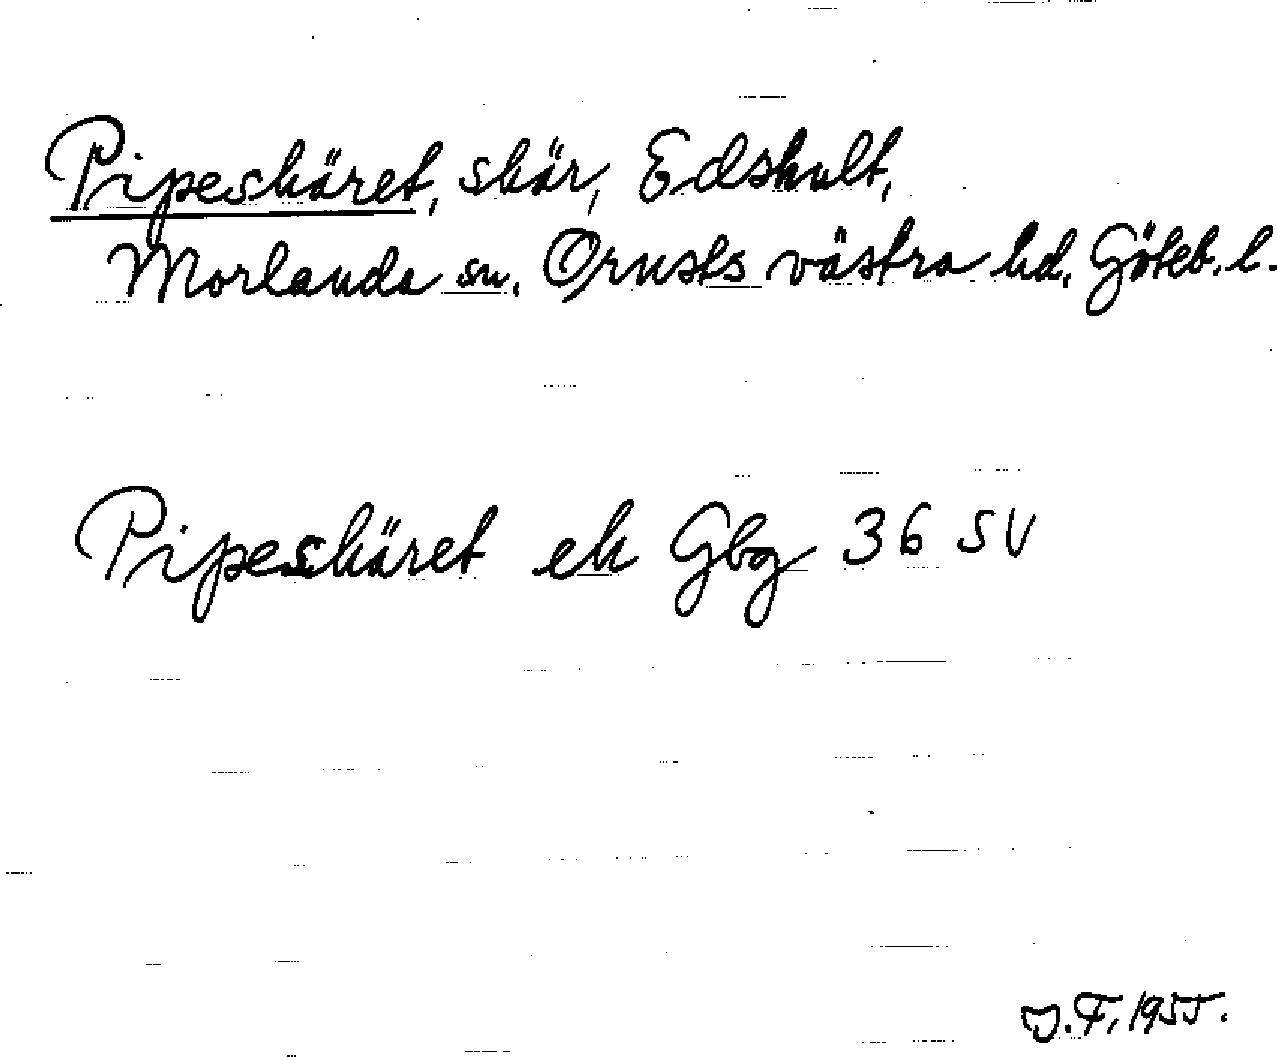 Pipeskäret, skär, Edshult,
Morlanda sn. Orusts västra hd. Göteb. l.
Pipeskäret ek Gbg 36 SV
J.F. 1955.